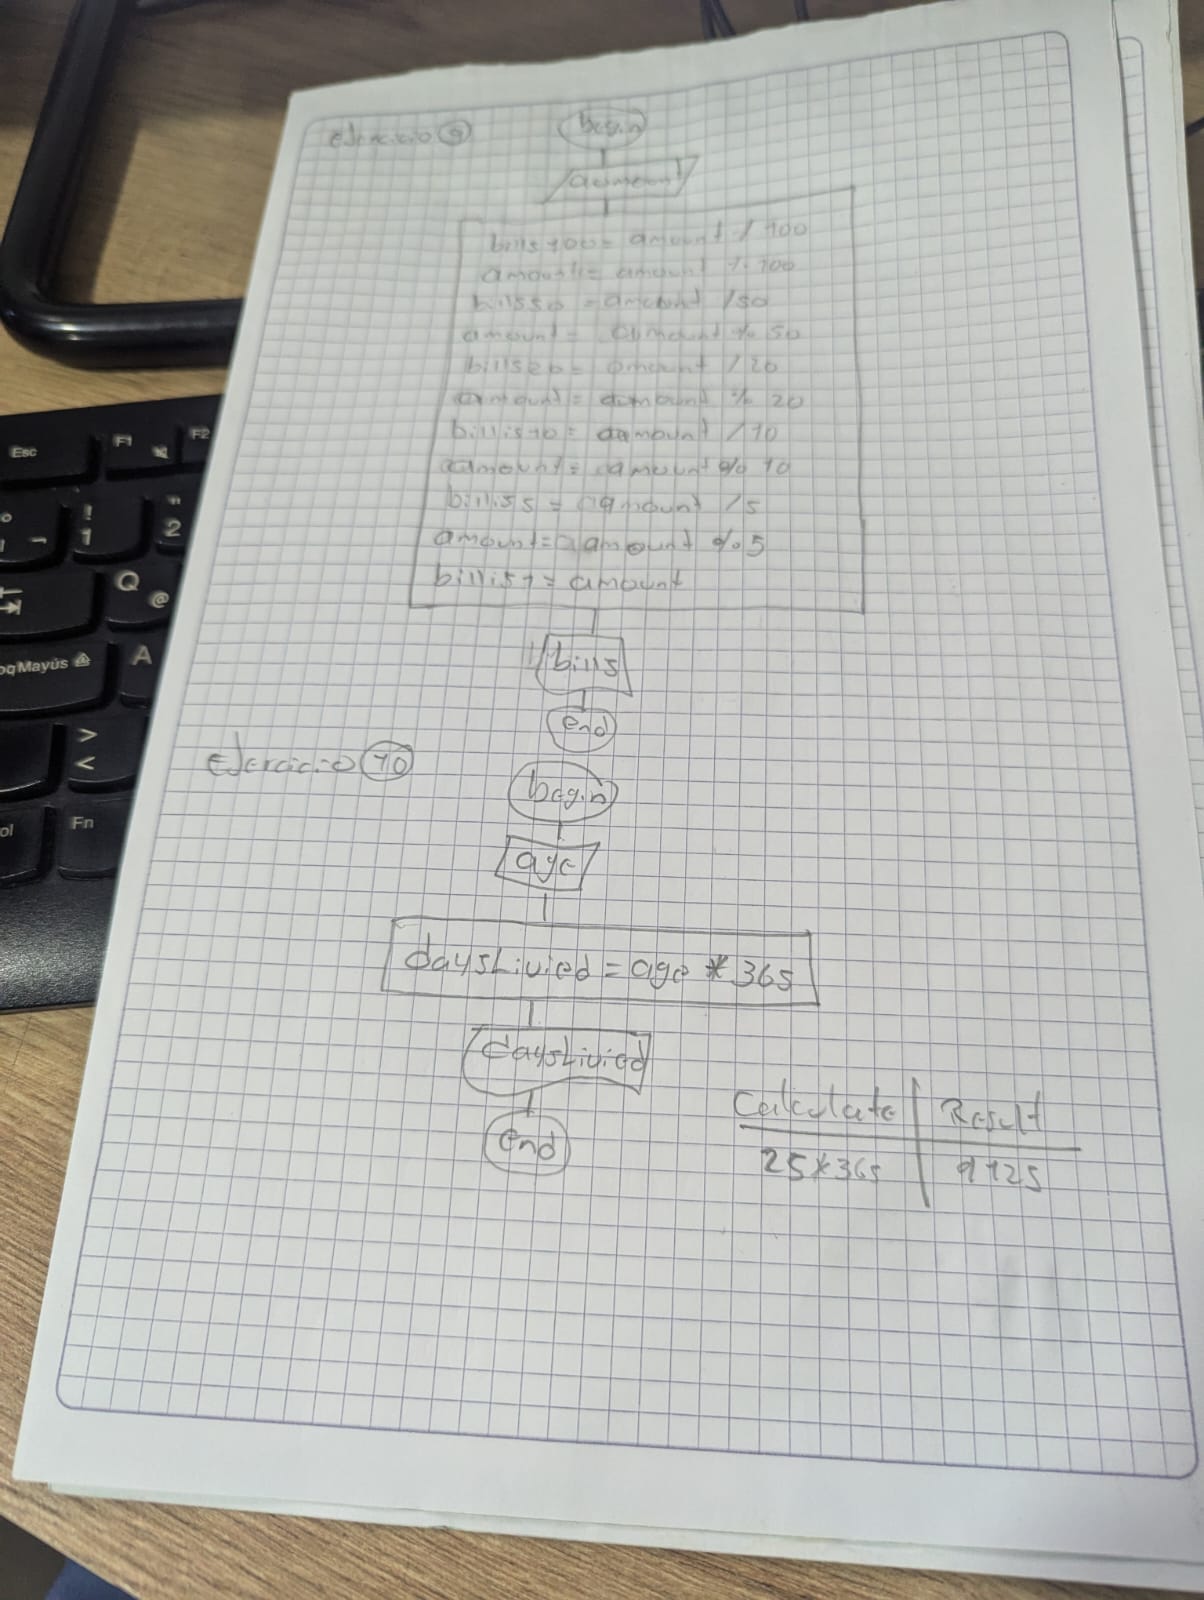 Ejercicio 9
begin
aamount
bills100 = amount / 100
amount = amount % 100
bills50 = amount /50
amount = aamount % 50
bills20 = amount /20
amount = aamount % 20
billis10 = aamount /10
aamount = aamount % 10
billis5 = aamount /5
amount = aamount % 5
billis1 = amount
bills
end
Ejercicio 10
begin
age
daysLivied = age * 365
daysLivied
end
Calculate Result
25*365 9125
Esc F1 F2
! 1 " 2
Q @
oqMayús A
> <
ol Fn